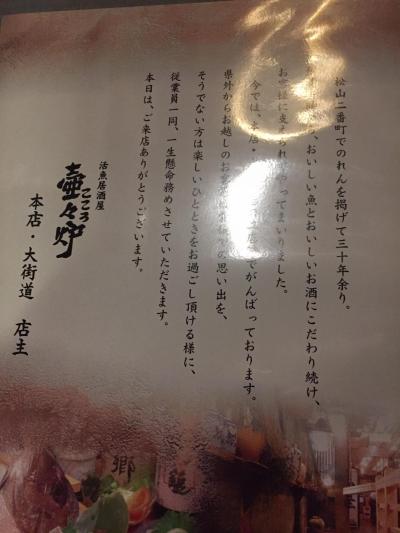 松山二番町でのれんを掲げて三十年余り。
おいしい魚とおいしいお酒にこだわり続け、
お客様に支えられ やってまいりました。
今では、本店・ でがんばっております。
県外からお越しのお の思い出を、
そうでない方は楽しいひとときをお過ごし頂ける様に、
従業員一同、一生懸命務めさせていただきます。
本日は、ご来店ありがとうございます。
活魚居酒屋
こころ
壺々炉
本店・大街道 店主
郷